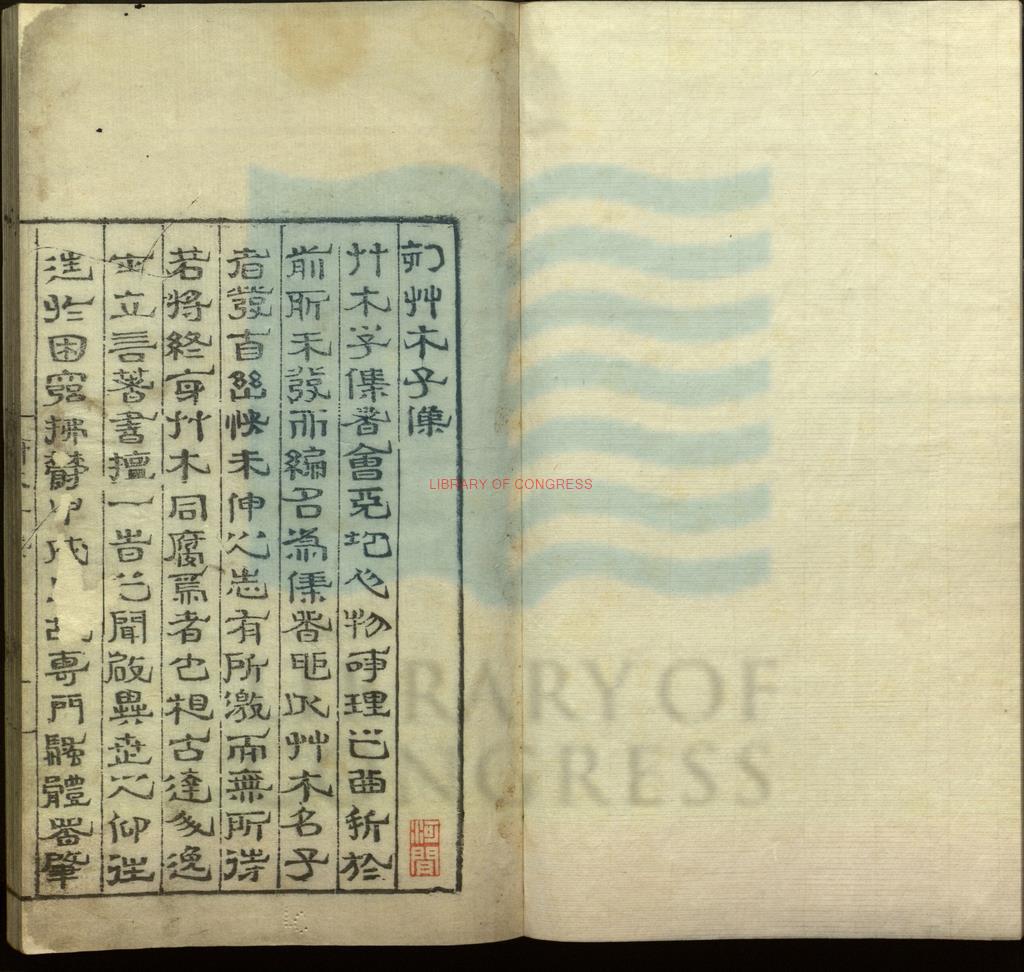 刻艸木子集
艸木子集者會天地之物事理之曲折於
前所未發而編名為集者耶以艸木名子
者發言幽怏未伸之志有所激而無所待
若將終身艸木同腐焉者也想古達多逸
士立言著書擅一昔之聞啟異世之仰往
往於困窮拂鬱中成專門騷體肇
河間
LIBRARY OF CONGRESS
LIBRARY OF
CONGRESS